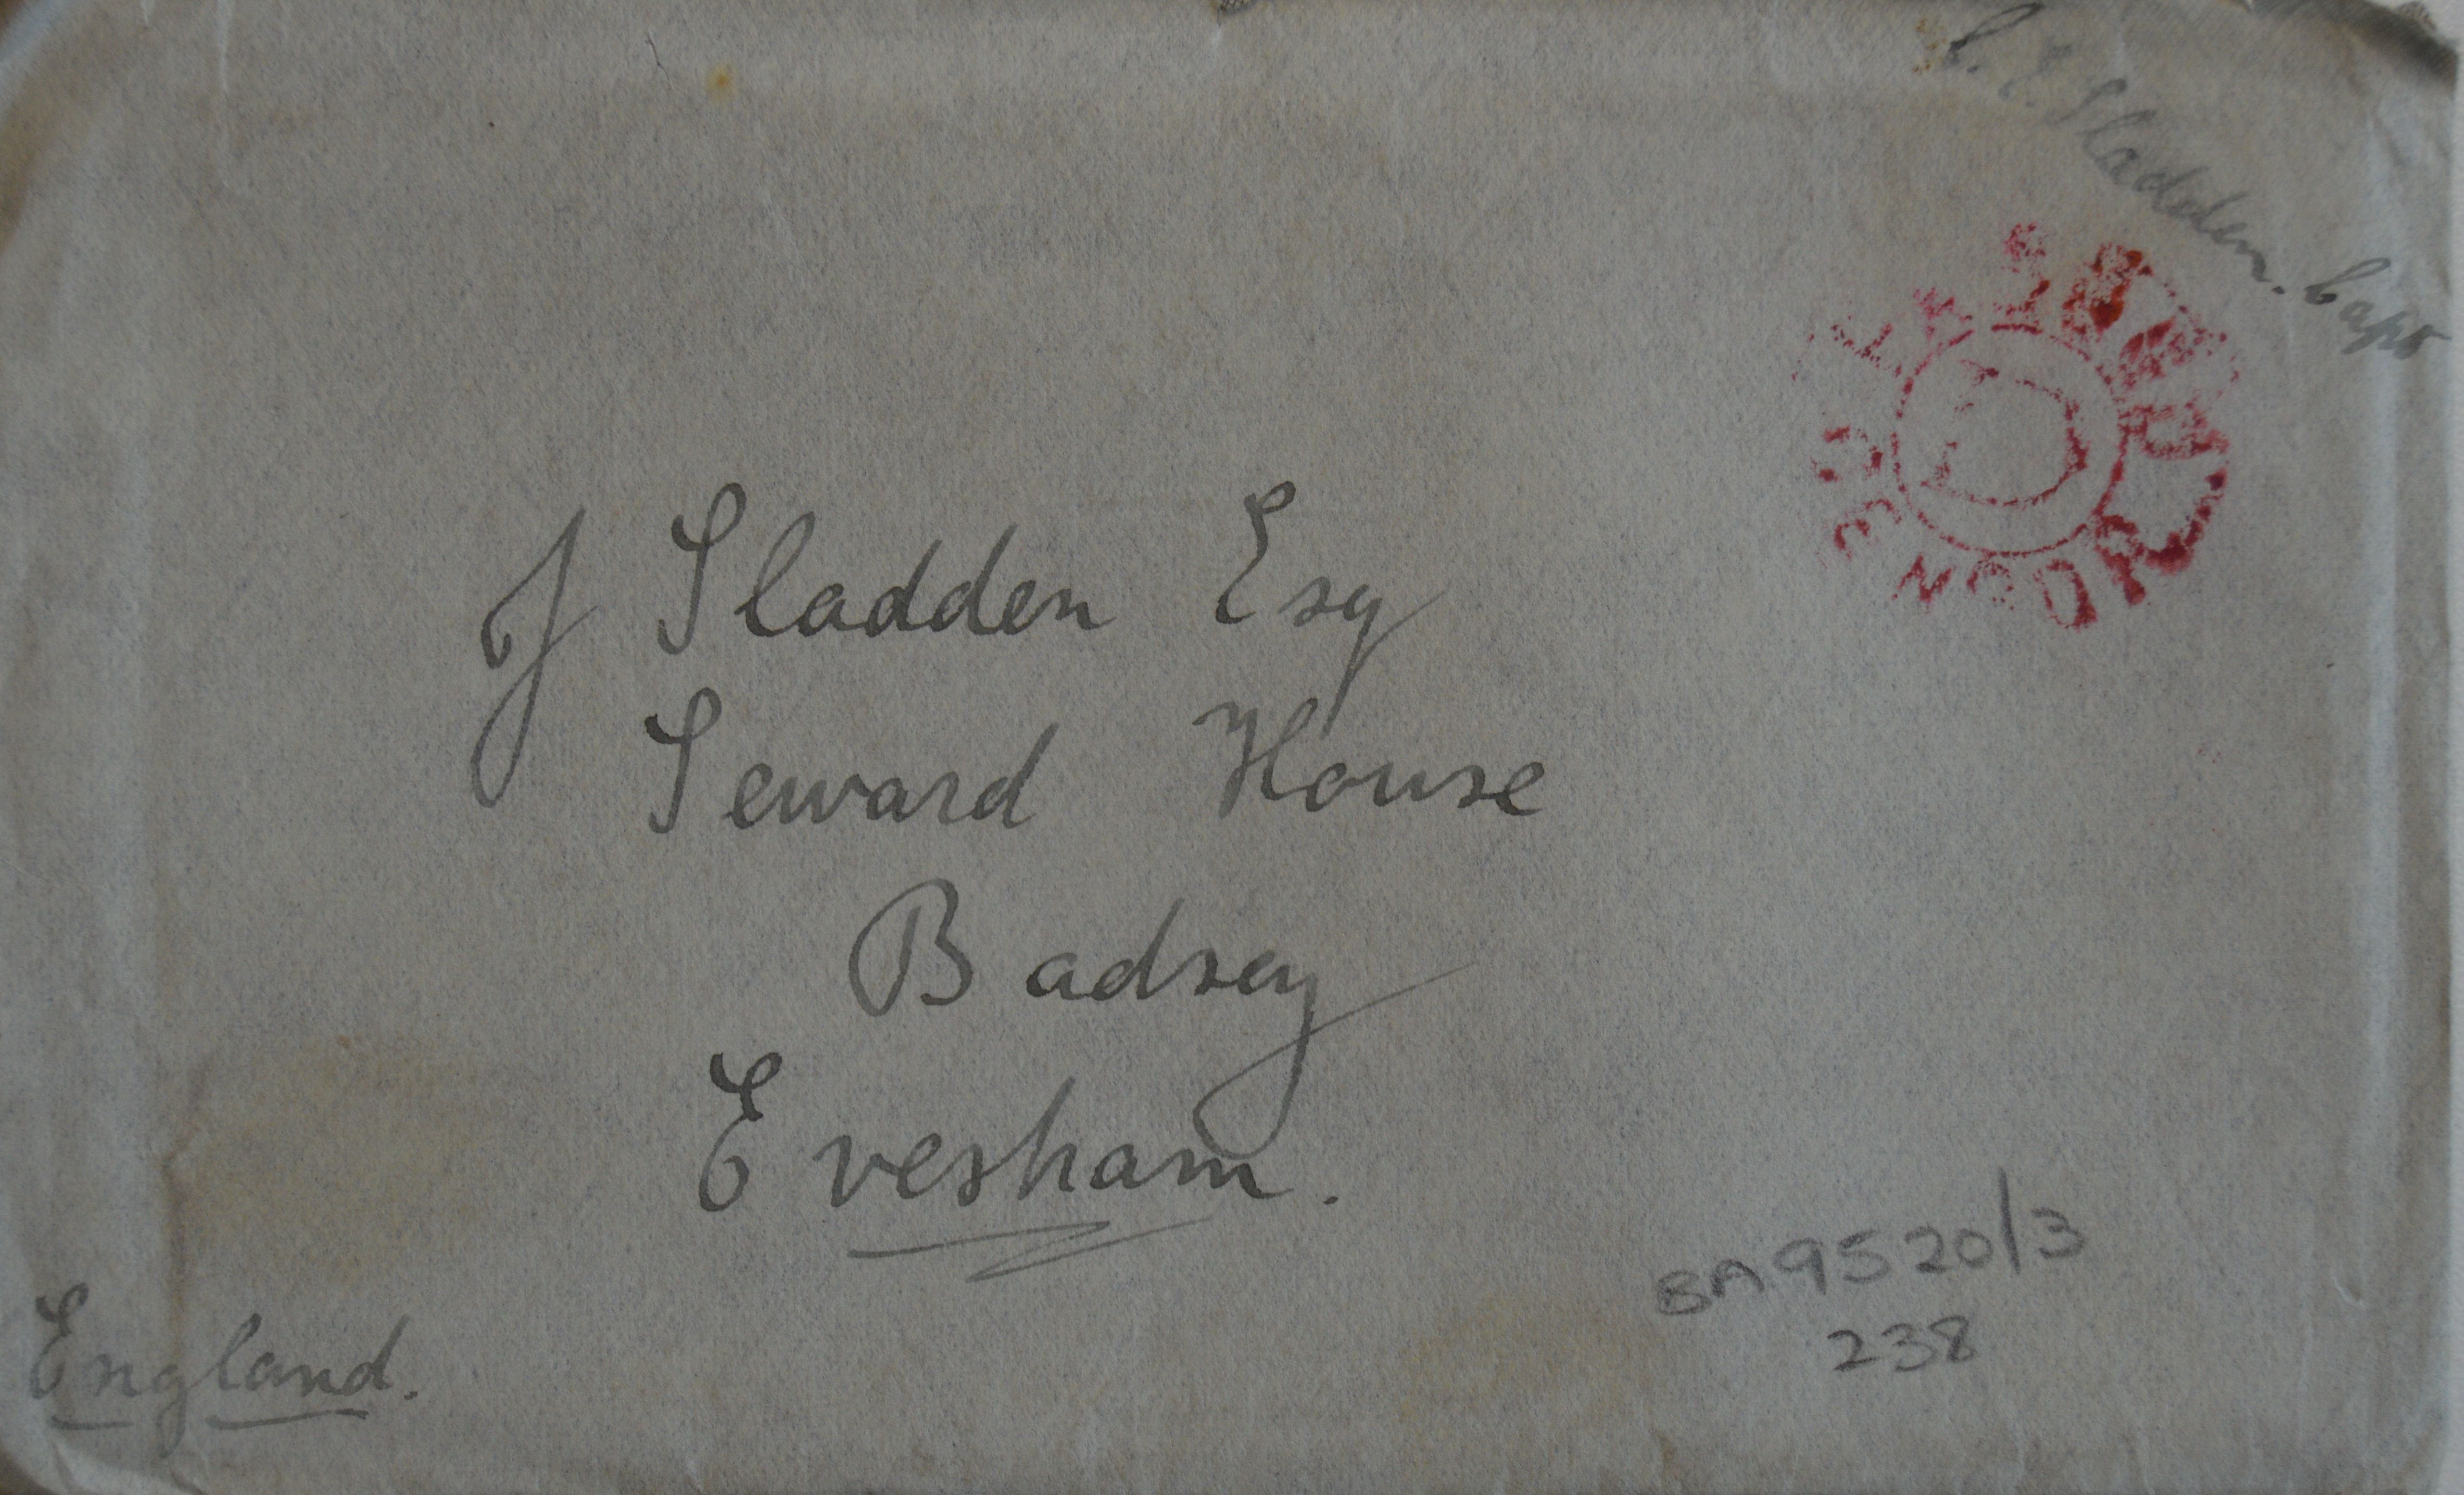 C. E. Sladden. Capt
J Sladden Esq
Seward House
Badsey
Evesham.
England.
BA9520/3
238